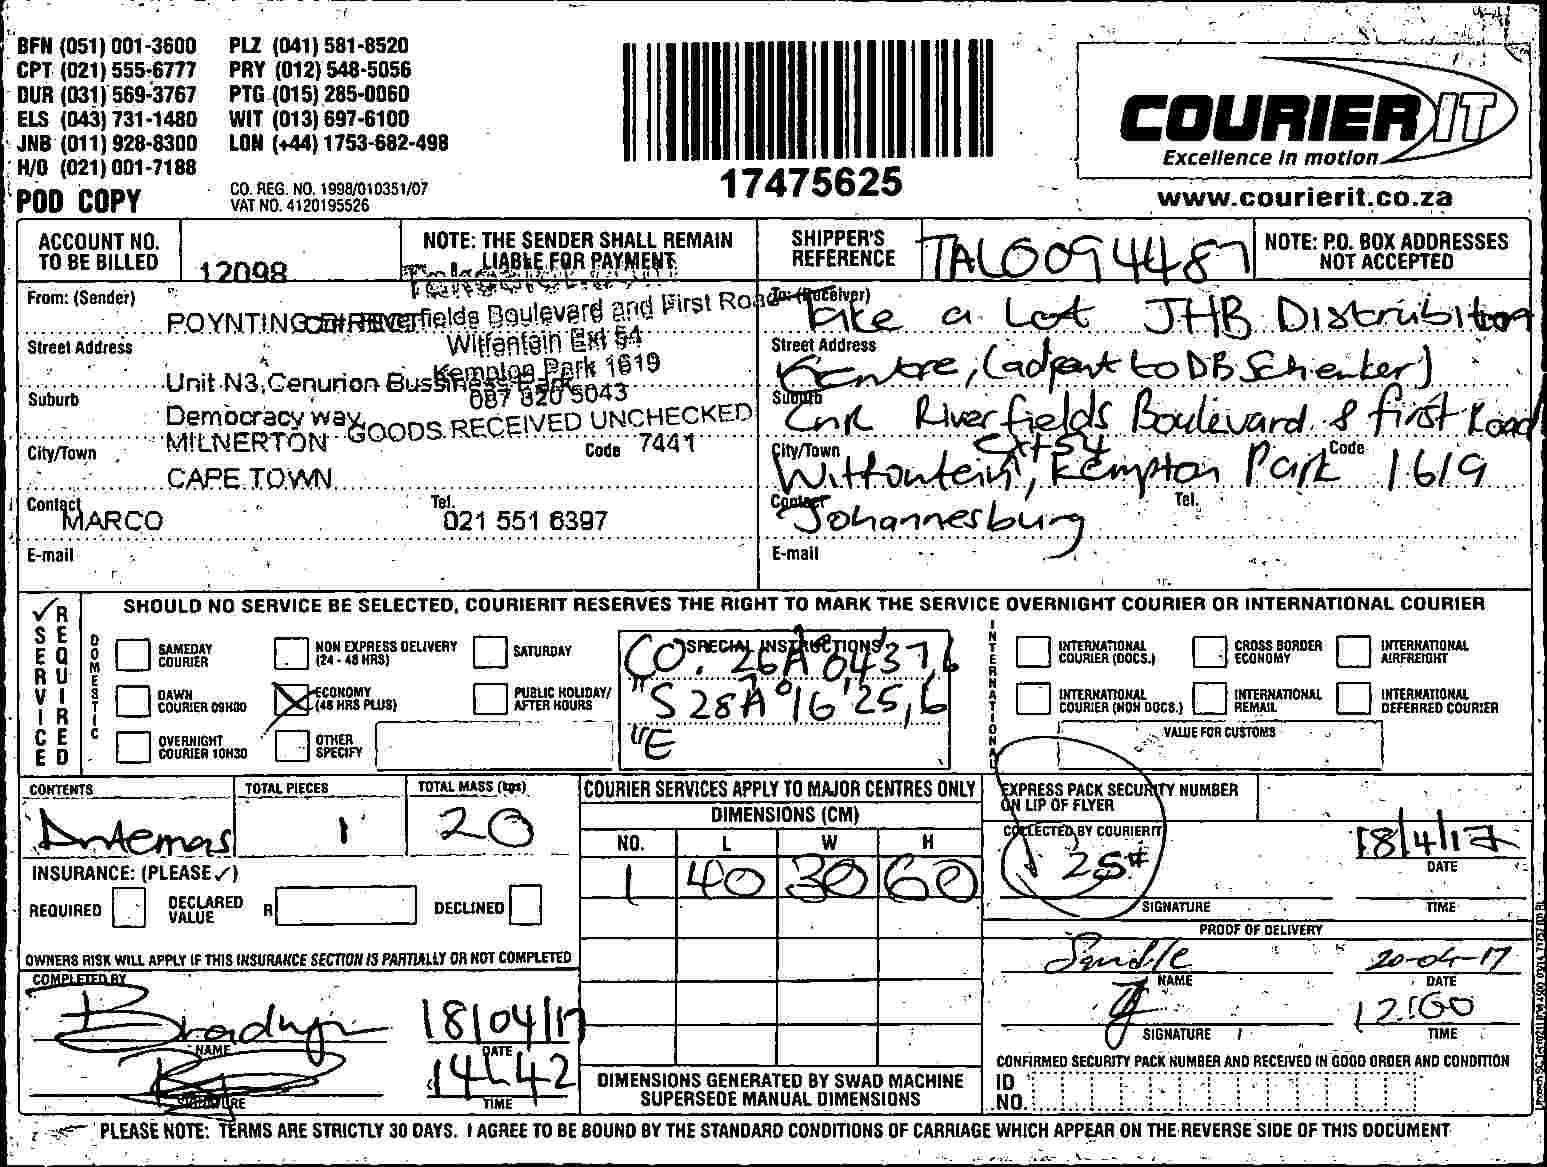 BFN (051) 001-3600 PLZ (041) 581-8520
CPT (021) 555-6777 PRY (012) 548-5056
DUR (031) 569-3767 PTG (015) 285-0060
ELS (043) 731-1480 WIT (013) 697-6100
JNB (011) 928-8300 LON (+44) 1753-682-498
H/O (021) 001-7188
POD COPY
CO. REG. NO. 1998/010351/07
VAT NO. 4120195526
17475625
COURIER IT
Excellence in motion
www.courierit.co.za
ACCOUNT NO. TO BE BILLED 12098
NOTE: THE SENDER SHALL REMAIN LIABLE FOR PAYMENT
SHIPPER'S REFERENCE TAL60094487
NOTE: P.O. BOX ADDRESSES NOT ACCEPTED
From: (Sender)
POYNTING DIRECT
Street Address
Unit N3,Cenurion Bussiness Park
Suburb
Democracy way
MILNERTON
City/Town Code 7441
CAPE TOWN
Contact MARCO Tel. 021 551 6397
E-mail
fields Boulevard and First Road
Witfontein Ext 54
Kempton Park 1619
087 820 5043
GOODS RECEIVED UNCHECKED
To: (Receiver)
Take a Lot JHB Distrubition
Street Address
Centre, (adjecent to DB Schenker)
Suburb
CnR Riverfields Boulevard & first Road
Ext 54
City/Town Code
Wittontein, Kempton Park 1619
Contact Tel.
Johannesburg
E-mail
✓ SERVICE REQUIRED
SHOULD NO SERVICE BE SELECTED, COURIERIT RESERVES THE RIGHT TO MARK THE SERVICE OVERNIGHT COURIER OR INTERNATIONAL COURIER
DOMESTIC
SAMEDAY COURIER
NON EXPRESS DELIVERY (24 - 48 HRS)
SATURDAY
DAWN COURIER 09H00
ECONOMY (48 HRS PLUS)
PUBLIC HOLIDAY/ AFTER HOURS
OVERNIGHT COURIER 10H30
OTHER SPECIFY
SPECIAL INSTRUCTIONS
"S 28A°16'25,6
"E
INTERNATIONAL
INTERNATIONAL COURIER (DOCS.)
CROSS BORDER ECONOMY
INTERNATIONAL AIRFREIGHT
INTERNATIONAL COURIER (NON DOCS.)
INTERNATIONAL REMAIL
INTERNATIONAL DEFERRED COURIER
VALUE FOR CUSTOMS
CONTENTS Antennas
TOTAL PIECES 1
TOTAL MASS (kgs) 20
INSURANCE: (PLEASE ✓)
REQUIRED DECLARED VALUE R DECLINED
OWNERS RISK WILL APPLY IF THIS INSURANCE SECTION IS PARTIALLY OR NOT COMPLETED
COMPLETED BY
Bradwyn 18/04/17
NAME DATE
14h42
SIGNATURE TIME
COURIER SERVICES APPLY TO MAJOR CENTRES ONLY
DIMENSIONS (CM)
NO. L W H
1 40 30 60
DIMENSIONS GENERATED BY SWAD MACHINE SUPERSEDE MANUAL DIMENSIONS
EXPRESS PACK SECURITY NUMBER ON LIP OF FLYER
COLLECTED BY COURIERIT
18/4/17
DATE
SIGNATURE TIME
PROOF OF DELIVERY
20-04-17
NAME DATE
SIGNATURE TIME
CONFIRMED SECURITY PACK NUMBER AND RECEIVED IN GOOD ORDER AND CONDITION
ID NO.
PLEASE NOTE: TERMS ARE STRICTLY 30 DAYS. I AGREE TO BE BOUND BY THE STANDARD CONDITIONS OF CARRIAGE WHICH APPEAR ON THE REVERSE SIDE OF THIS DOCUMENT